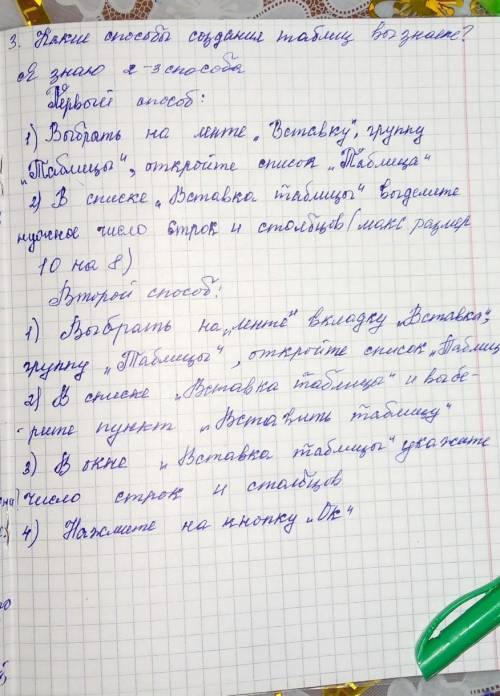 3. Какие способы создания таблиц вы знаете?
Я знаю 2-3 способа
Первый способ:
1) Выбрать на ленте „Вставку", группу
„Таблицы", откройте список „Таблица"
2) В списке „Вставка таблицы" выделите
нужное число строк и столбцов (макс размер
10 на 8)
Второй способ:
1) Выбрать на „ленте" вкладку „Вставка",
группу „Таблицы", откройте список „Таблиц
2) В списке „Вставка таблица" и выбе-
-рите пункт „Вставить таблицу"
3) В окне „Вставка таблицы" укажите
число строк и столбцов
4) Нажмите на кнопку „Ок"